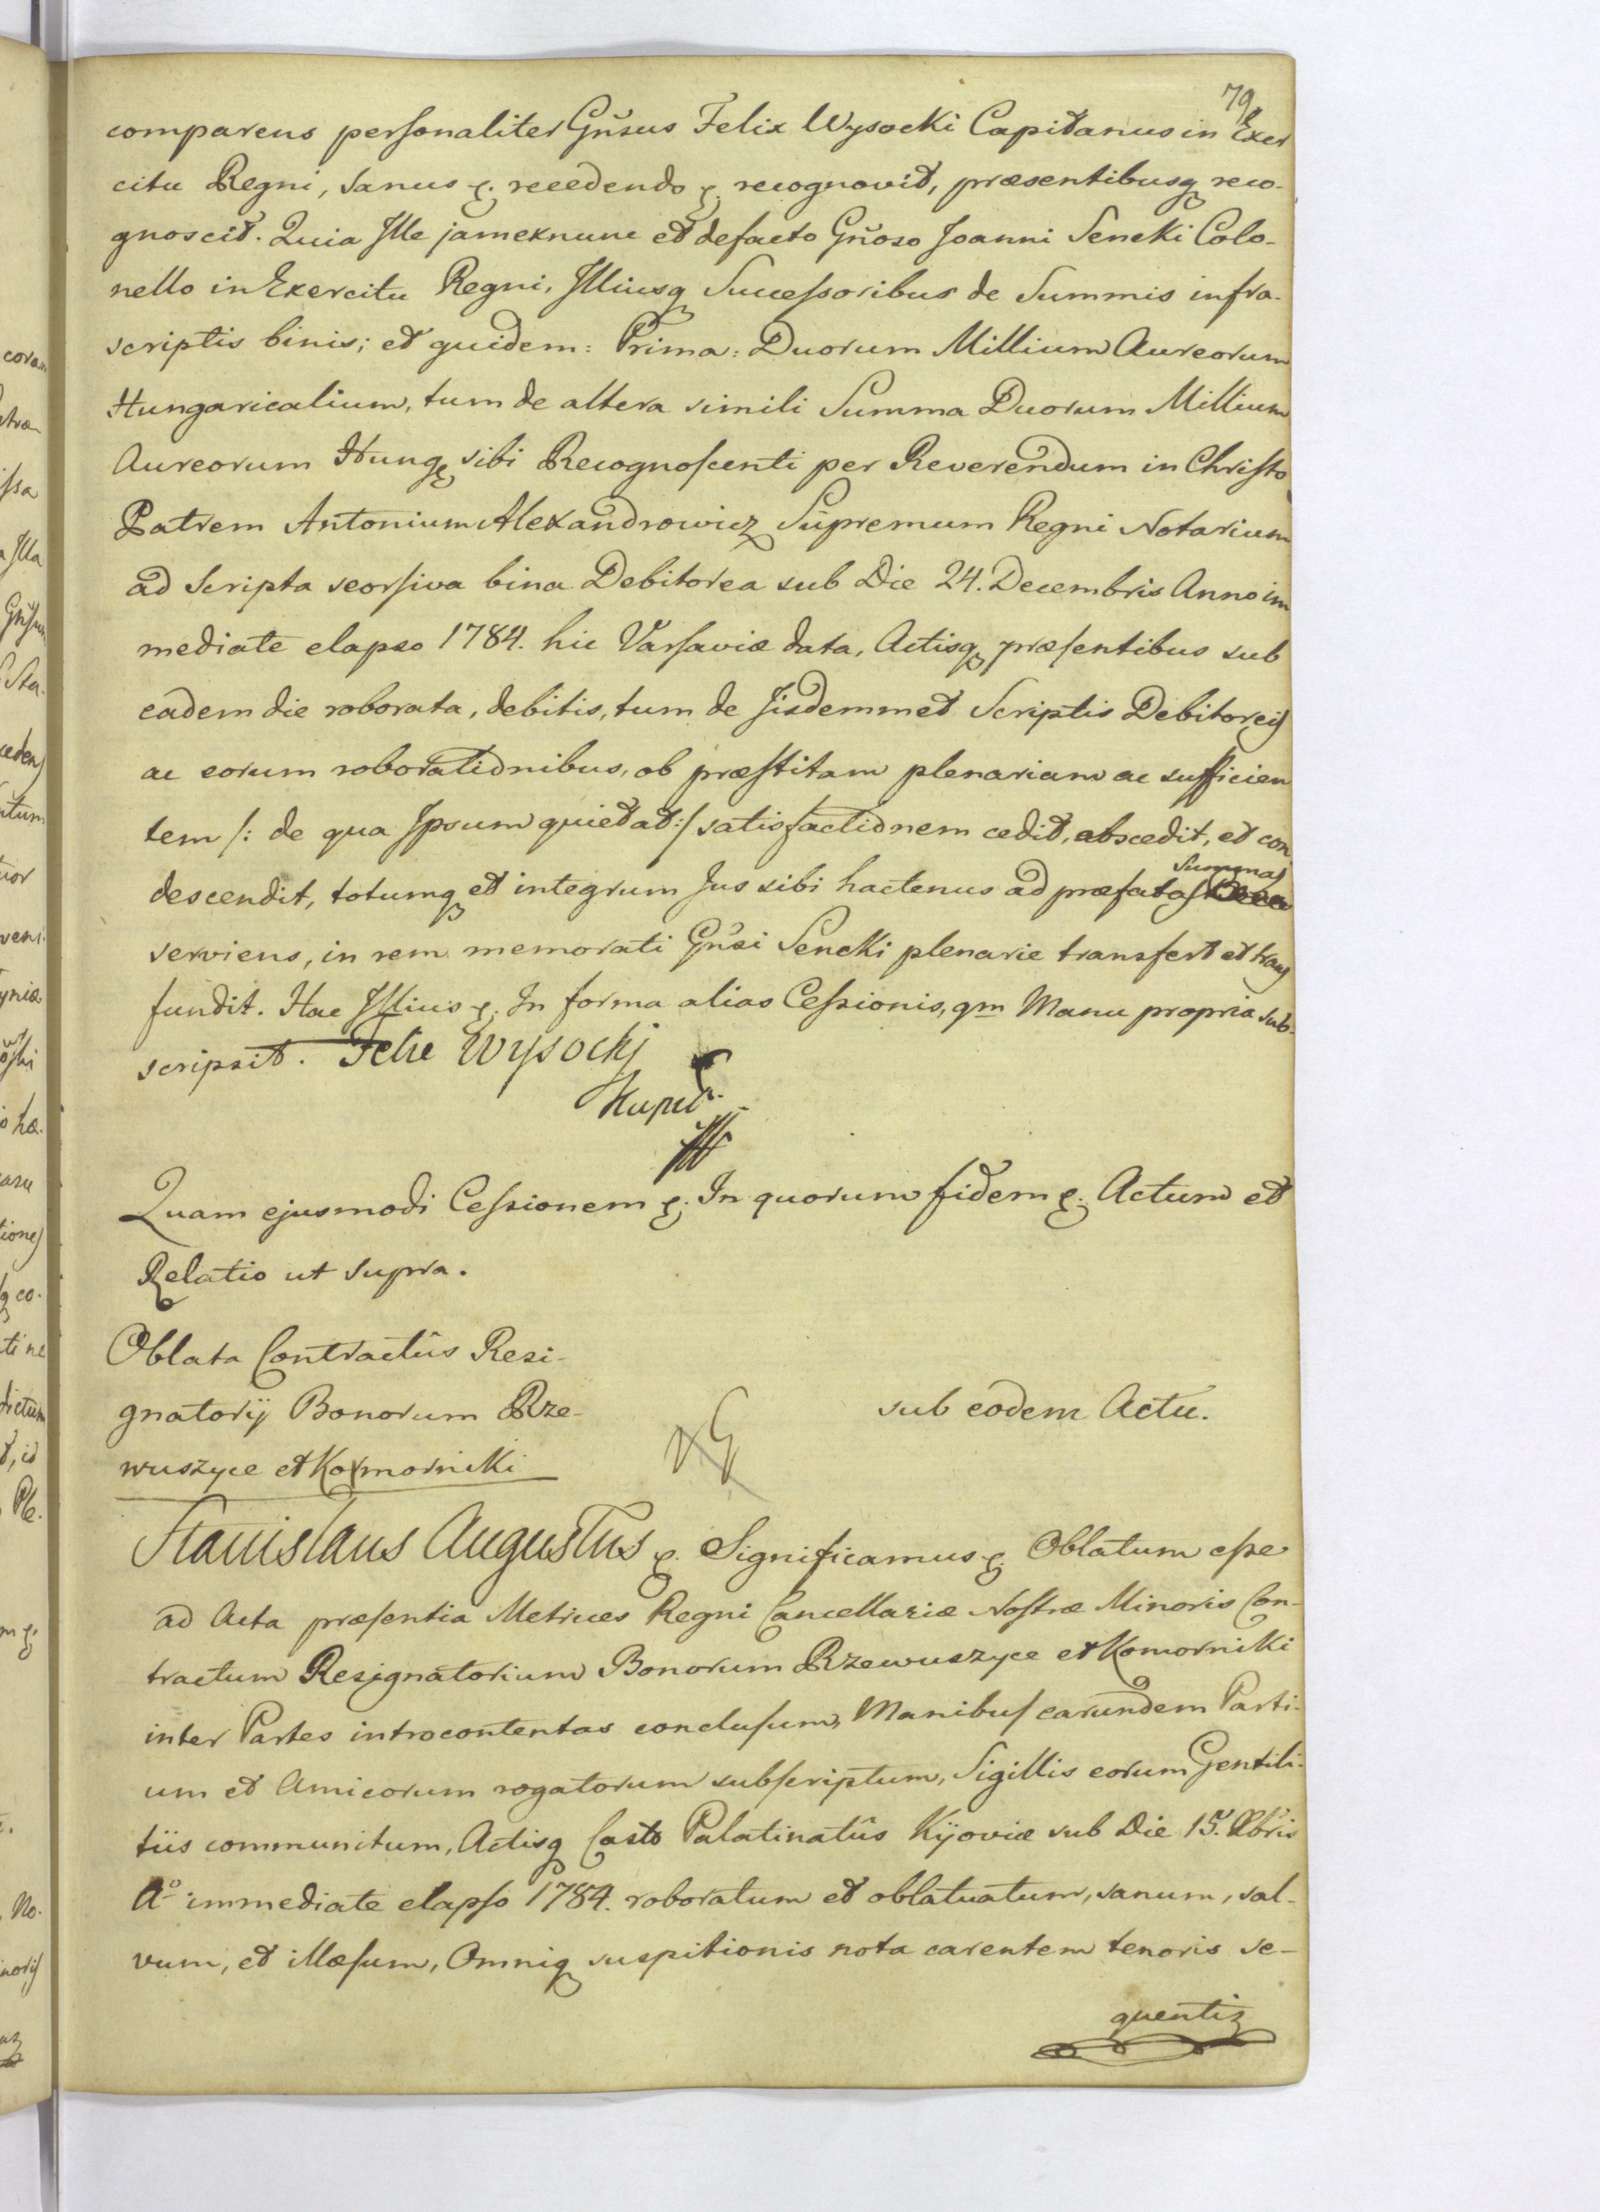 79
comparens personaliter Gn̄sus Felix Wysocki Capitanus in Exer
citu Regni, sanus &. recedendo &. recognovit, præsentibusq reco-
gnoscit. Quia Ille jam exnunc et defacto Gn̄oso Joanni Sencki Colo-
nello in Exercitu Regni, Illiusq Successoribus de Summis infra-
scriptis binis; et quidem: Prima: Duorum Millium Aureorum
Hungaricalium, tum de altera simili Summa Duorum Millium
Aureorum Hung. sibi Recognoscenti per Reverendum in Christo
Patrem Antonium Alexandrowicz Supremum Regni Notarium
ad Scripta seorsiva bina Debitorea sub Die 24. Decembris Anno im
mediate elapso 1784. hic Varsaviæ data, Actisq præsentibus sub
eadem die roborata, debitis, tum de Iisdemmet Scriptis Debitoreis
ac eorum roborationibus, ob præstitam plenariam ac sufficien
tem /: de qua Ipsum quietat :/ satisfactionem cedit, abscedit, et con
descendit, totumq et integrum Jus sibi hactenus ad præfatas Summas
serviens, in rem memorati Gn̄si Sencki plenarie transfert et trans
fundit. Hac Illius &. In forma alias Cessionis, qm Manu propria sub-
scripsit. Felix Wysocki
Kapit.
Quam ejusmodi Cessionem &. In quorum fidem &. Actum et
Relatio ut supra.
Oblata Contractûs Resi-
gnatorij Bonorum Rze-
wuszyce et Komorniki
sub eodem Actu.
Stanislaus Augustus &. Significamus &. Oblatum esse
ad Acta præsentia Metrices Regni Cancellariæ Nostræ Minoris Con-
tractum Resignatorium Bonorum Rzewuszyce et Komorniki
inter Partes introcontentas conclusum, Manibus earundem Parti-
um et Amicorum rogatorum subscriptum, Sigillis eorum Gentili-
tiis communitum, Actisq Casto Palatinatûs Kijoviæ sub Die 15. Xbris
Aº immediate elapso 1784. roboratum et oblatuatum, sanum, sal-
vum, et illæsum, Omniq suspitionis nota carentem tenoris se-
quentis